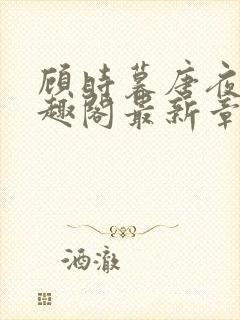 顾时暮唐夜
趣阁最新章
酒澈